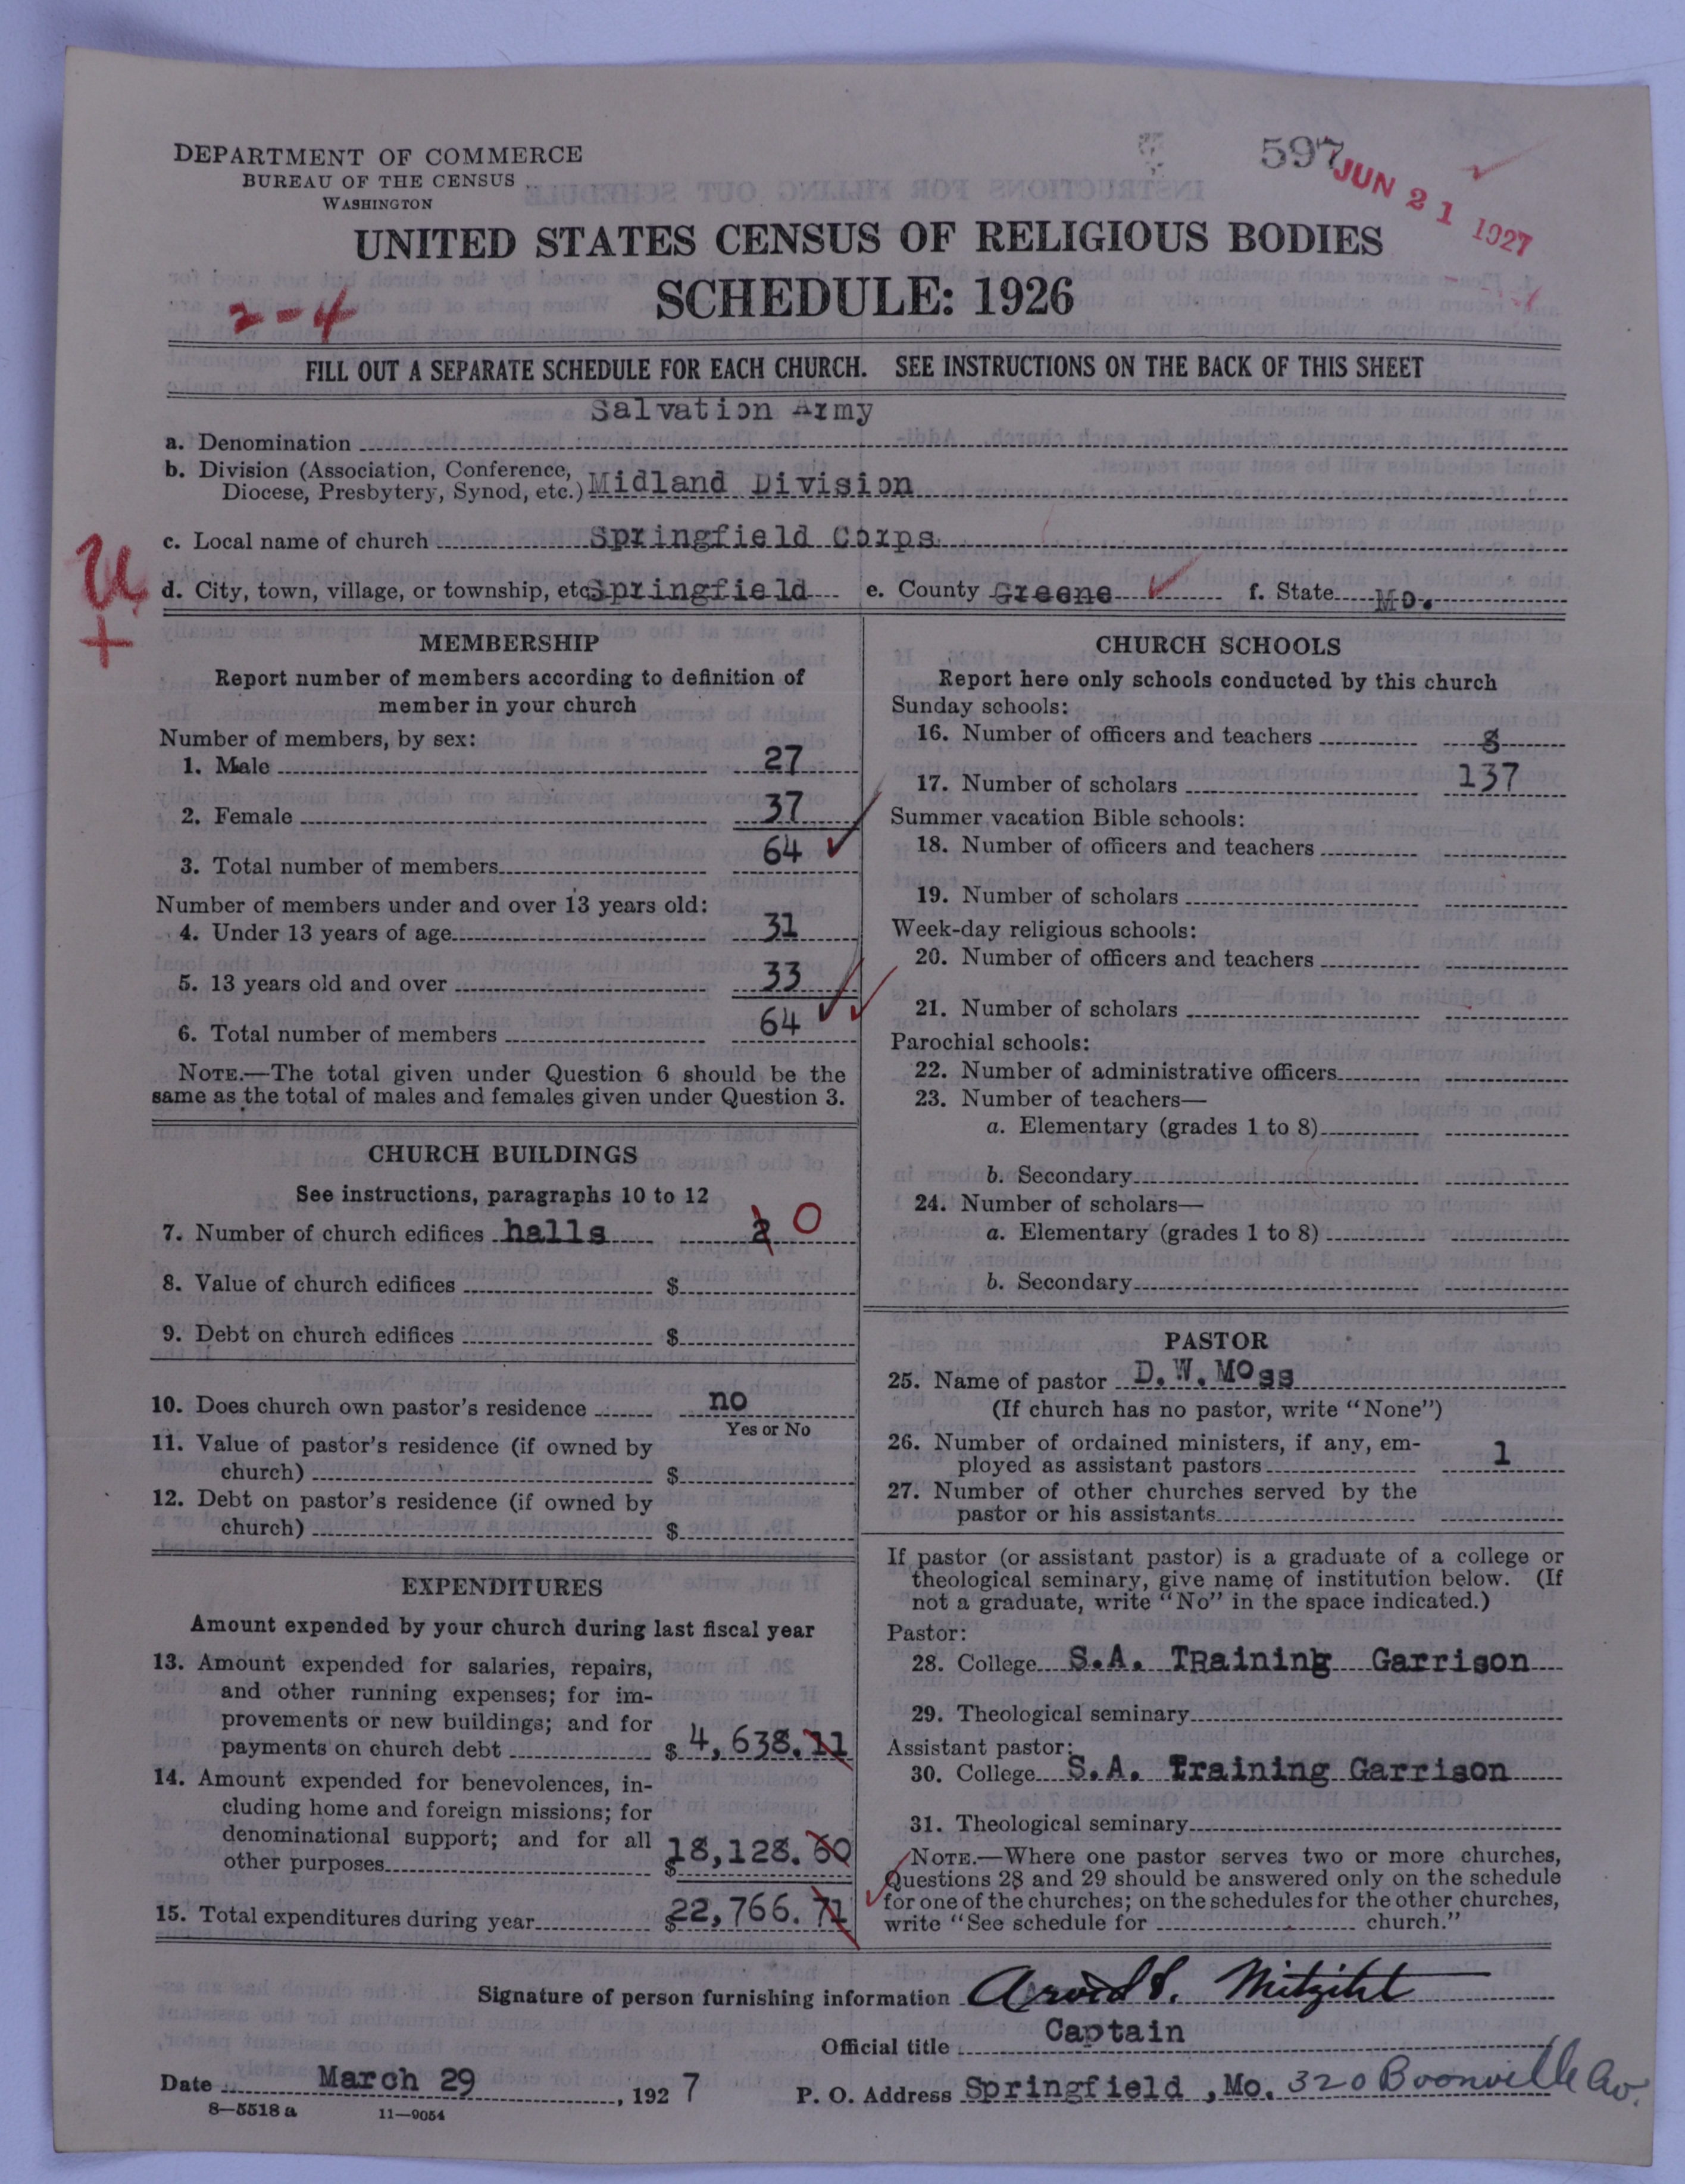 DEPARTMENT OF COMMERCE
BUREAU OF THE CENSUS
WASHINGTON
597
JUN 21 1927
UNITED STATES CENSUS OF RELIGIOUS BODIES
SCHEDULE: 1926
2-4
FILL OUT A SEPARATE SCHEDULE FOR EACH CHURCH. SEE INSTRUCTIONS ON THE BACK OF THIS SHEET
a. Denomination Salvation Army
b. Division (Association, Conference,
Diocese, Presbytery, Synod, etc.) Midland Division
c. Local name of church Springfield Corps
d. City, town, village, or township, etc. Springfield e. County Greene f. State Mo.
U
+
MEMBERSHIP
Report number of members according to definition of
member in your church
Number of members, by sex:
1. Male 27
2. Female 37
3. Total number of members 64
Number of members under and over 13 years old:
4. Under 13 years of age 31
5. 13 years old and over 33
6. Total number of members 64
NOTE.—The total given under Question 6 should be the
same as the total of males and females given under Question 3.
CHURCH BUILDINGS
See instructions, paragraphs 10 to 12
7. Number of church edifices halls 2 0
8. Value of church edifices $
9. Debt on church edifices $
10. Does church own pastor's residence no
Yes or No
11. Value of pastor's residence (if owned by
church) $
12. Debt on pastor's residence (if owned by
church) $
EXPENDITURES
Amount expended by your church during last fiscal year
13. Amount expended for salaries, repairs,
and other running expenses; for im-
provements or new buildings; and for
payments on church debt $ 4,638.11
14. Amount expended for benevolences, in-
cluding home and foreign missions; for
denominational support; and for all
other purposes $ 18,128.60
15. Total expenditures during year $ 22,766.71
CHURCH SCHOOLS
Report here only schools conducted by this church
Sunday schools:
16. Number of officers and teachers 8
17. Number of scholars 137
Summer vacation Bible schools:
18. Number of officers and teachers
19. Number of scholars
Week-day religious schools:
20. Number of officers and teachers
21. Number of scholars
Parochial schools:
22. Number of administrative officers
23. Number of teachers—
a. Elementary (grades 1 to 8)
b. Secondary
24. Number of scholars—
a. Elementary (grades 1 to 8)
b. Secondary
PASTOR
25. Name of pastor D.W.MOss
(If church has no pastor, write "None")
26. Number of ordained ministers, if any, em-
ployed as assistant pastors 1
27. Number of other churches served by the
pastor or his assistants
If pastor (or assistant pastor) is a graduate of a college or
theological seminary, give name of institution below. (If
not a graduate, write "No" in the space indicated.)
Pastor:
28. College S.A. TRaining Garrison
29. Theological seminary
Assistant pastor:
30. College S.A. Training Garrison
31. Theological seminary
NOTE.—Where one pastor serves two or more churches,
Questions 28 and 29 should be answered only on the schedule
for one of the churches; on the schedules for the other churches,
write "See schedule for church."
Signature of person furnishing information
Official title Captain
Date March 29, 1927 P. O. Address Springfield ,Mo. 320 Boonville Av.
8—5518 a 11—9054